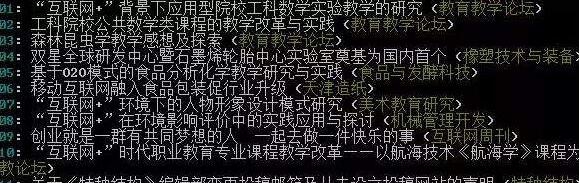 01: “互联网+”背景下应用型院校工科数学实验教学的研究《教育教学论坛》
02: 工科院校公共数学类课程的教学改革与实践《教育教学论坛》
03: 森林昆虫学教学感想及探索《教育教学论坛》
04: 双星全球研发中心暨石墨烯轮胎中心实验室奠基为国内首个《橡塑技术与装备
05: 基于O2O模式的食品分析化学教学研究与实践《食品与发酵科技》
06: 移动互联网融入食品包装促行业升级《天津造纸》
07: “互联网+”环境下的人物形象设计模式研究《美术教育研究》
08: “互联网+”在环境影响评价中的实践应用与探讨《机械管理开发》
09: 创业就是一群有共同梦想的人 一起去做一件快乐的事《互联网周刊》
10: “互联网+”时代职业教育专业课程教学改革——以航海技术《航海学》课程为
教论坛》
11: 关于《特种结构》编辑部变更投稿邮箱及从未设立投稿网站的声明